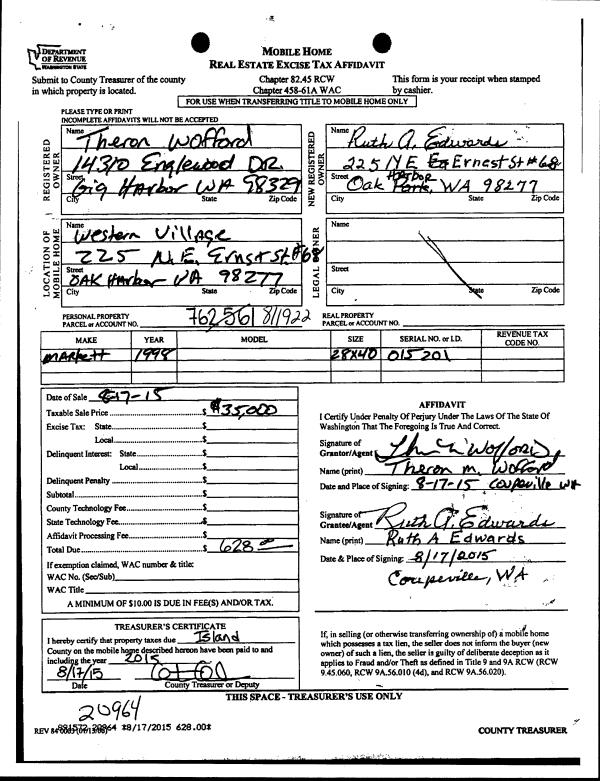 DEPARTMENT
OF REVENUE
WASHINGTON STATE
MOBILE HOME
REAL ESTATE EXCISE TAX AFFIDAVIT
Submit to County Treasurer of the county
in which property is located.
Chapter 82.45 RCW
Chapter 458-61A WAC
This form is your receipt when stamped
by cashier.
FOR USE WHEN TRANSFERRING TITLE TO MOBILE HOME ONLY
PLEASE TYPE OR PRINT
INCOMPLETE AFFIDAVITS WILL NOT BE ACCEPTED
REGISTERED OWNER
Name Theron Wofford
14310 Englewood DR.
Street
Gig Harbor WA 98329
City State Zip Code
NEW REGISTERED OWNER
Name Ruth A. Edwards
225 NE Ernest St #68
Street Harbor
Oak Park, WA 98277
City State Zip Code
LOCATION OF MOBILE HOME
Name Western Village
225 N.E. Ernst St #68
Street
OAK Harbor WA 98277
City State Zip Code
LEGAL OWNER
Name
Street
City State Zip Code
PERSONAL PROPERTY
PARCEL or ACCOUNT NO. 762561 811922
REAL PROPERTY
PARCEL or ACCOUNT NO.
MAKE YEAR MODEL SIZE SERIAL NO. or I.D. REVENUE TAX CODE NO.
1998 28X40 015201
Date of Sale 8-17-15
Taxable Sale Price $ $35,000
Excise Tax: State $
Local $
Delinquent Interest: State $
Local $
Delinquent Penalty $
Subtotal $
County Technology Fee $
State Technology Fee $
Affidavit Processing Fee $
Total Due $ 628
If exemption claimed, WAC number & title:
WAC No. (Sec/Sub)
WAC Title
A MINIMUM OF $10.00 IS DUE IN FEE(S) AND/OR TAX.
AFFIDAVIT
I Certify Under Penalty Of Perjury Under The Laws Of The State Of
Washington That The Foregoing Is True And Correct.
Signature of
Grantor/Agent
Name (print) Theron M. Wofford
Date and Place of Signing: 8-17-15 Coupeville WA
Signature of
Grantee/Agent Ruth A. Edwards
Name (print) Ruth A Edwards
Date & Place of Signing: 8/17/2015
Coupeville, WA
TREASURER'S CERTIFICATE
I hereby certify that property taxes due Island
County on the mobile home described hereon have been paid to and
including the year 2015
8/17/15
Date County Treasurer or Deputy
If, in selling (or otherwise transferring ownership of) a mobile home
which possesses a tax lien, the seller does not inform the buyer (new
owner) of such a lien, the seller is guilty of deliberate deception as it
applies to Fraud and/or Theft as defined in Title 9 and 9A RCW (RCW
9.45.060, RCW 9A.56.010 (4d), and RCW 9A.56.020).
THIS SPACE - TREASURER'S USE ONLY
20964
REV 84 *8/17/2015 628.00*
COUNTY TREASURER